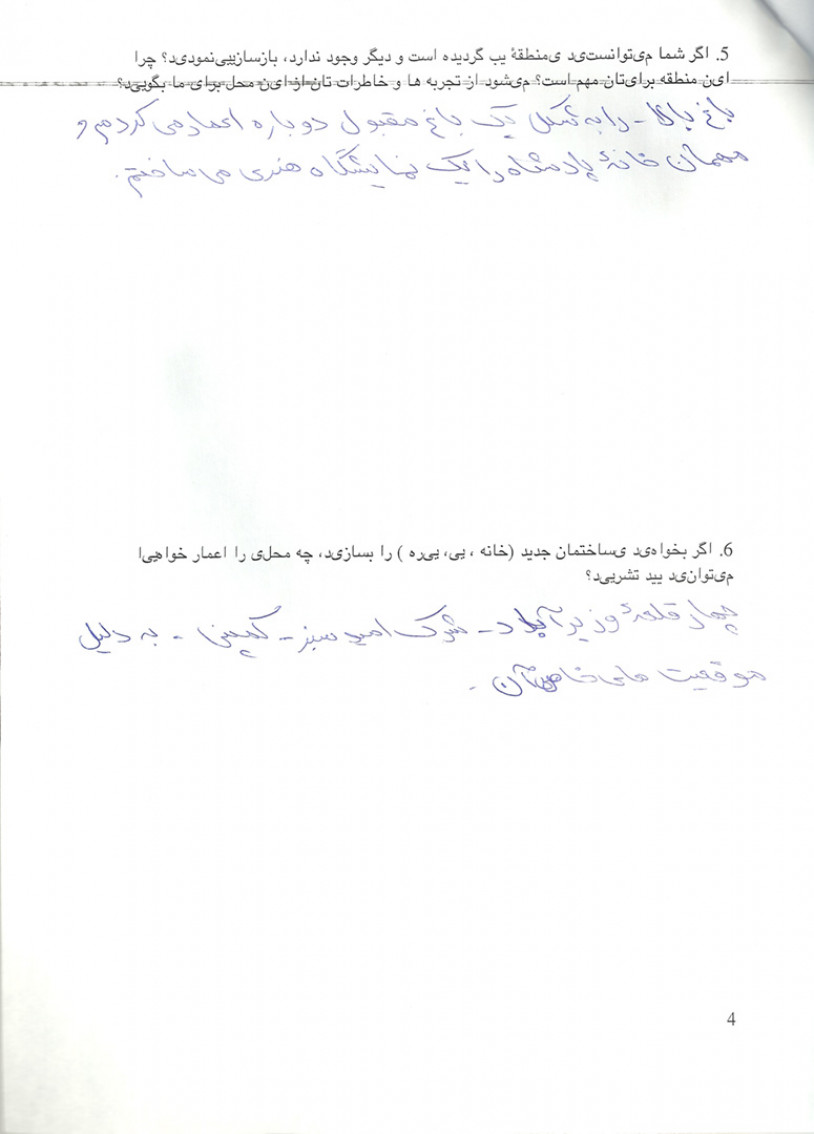 5. اگر شما می‌توانستید ی‌منطقهٔ یب گردیده است و دیگر وجود ندارد، بازسازیی‌نمودید؟ چرا
این منطقه برای‌تان مهم است؟ می‌شود از تجربه ها و خاطرات تان‌از این محل برای ما بگویید؟
باغ بالا - را به شکل یک باغ مقبول دوباره اعمار می کردم و
مهمان خانهٔ پادشاه را یک نمایشگاه هنری می ساختم.
6. اگر بخواهید ی‌ساختمان جدید (خانه ، یی، یی‌ره ) را بسازید، چه محلی را اعمار خواهی‌ا
می‌توانید یید تشریی‌د؟
چهار قلعهٔ وزیر آباد - شهرک امید سبز - کمپنی - به دلیل
موقعیت های خاص آن.
4